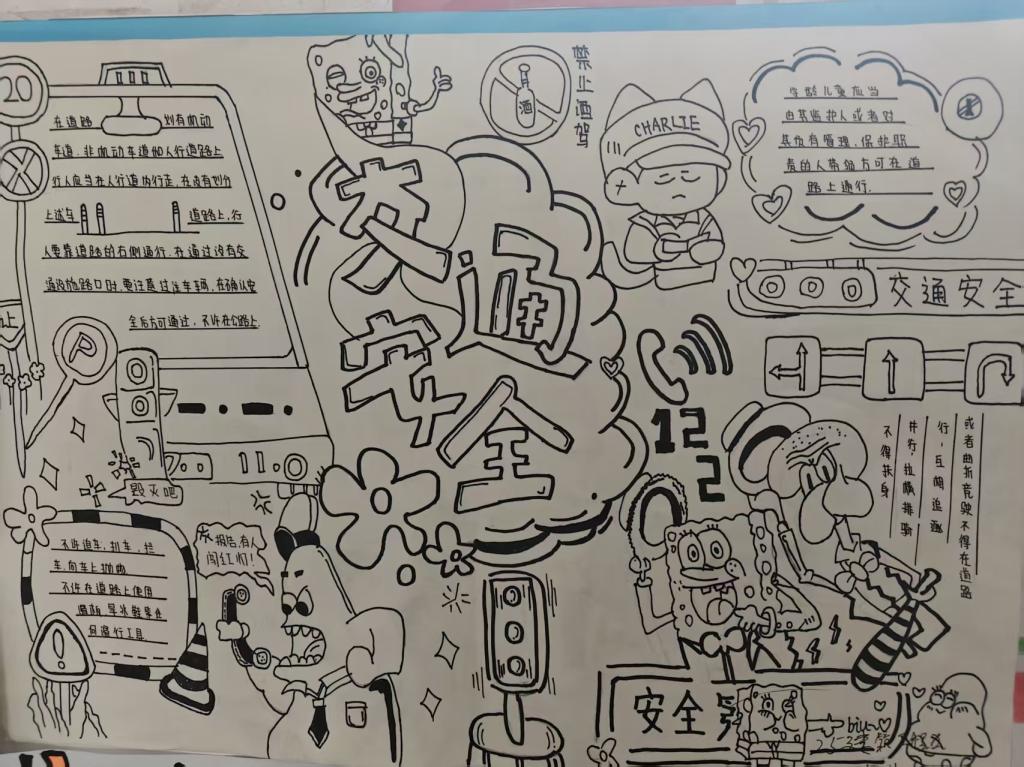 20
在道路 划有机动
车道、非机动车道和人行道路上
行人应当在人行道内行走,在没有划分
上述车 道路上,行
人要靠道路的右侧通行.在通过没有交
通设施路口时,要注意过往车辆,在确认安
全后方可通过,不许在公路上
P
毁灭吧
不许追车,扒车,拦
车,向车上抛
不许在道路上使用
滑板 旱冰鞋
滑行工具
!
报告,有人
闯红灯!
交通安全
酒
禁止酒驾
CHARLIE
学龄儿童应当
由其监护人或者对
其负有管理,保护职
责的人带领方可在道
路上通行.
交通安全
122
或者曲折竞驶不得在道路
行,互相追逐
并行,
不得扶身
安全
biu~